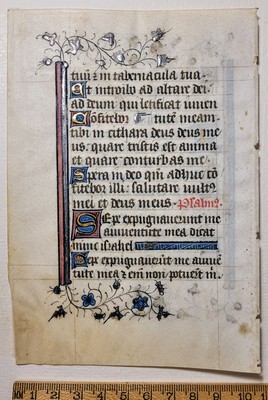 tuū ⁊ in tabernacula tua.
Et introibo ad altare dei
ad deum qui letificat iuuen
Cōfitebor tutē meam
tibi in cithara deus deus me
us. quare tristis est anima
et quare conturbas me.
Spera in deo qm̄ adhuc cō
fitebor illi. salutare vult⁹
mei et deus meus. Psalm⁹.
Sepe expugnauerunt me
a iuuentute mea dicat
nunc israhel
Sepe expugnauerūt me a iuuē
tute mea ⁊ enī non potuerūt m̄.